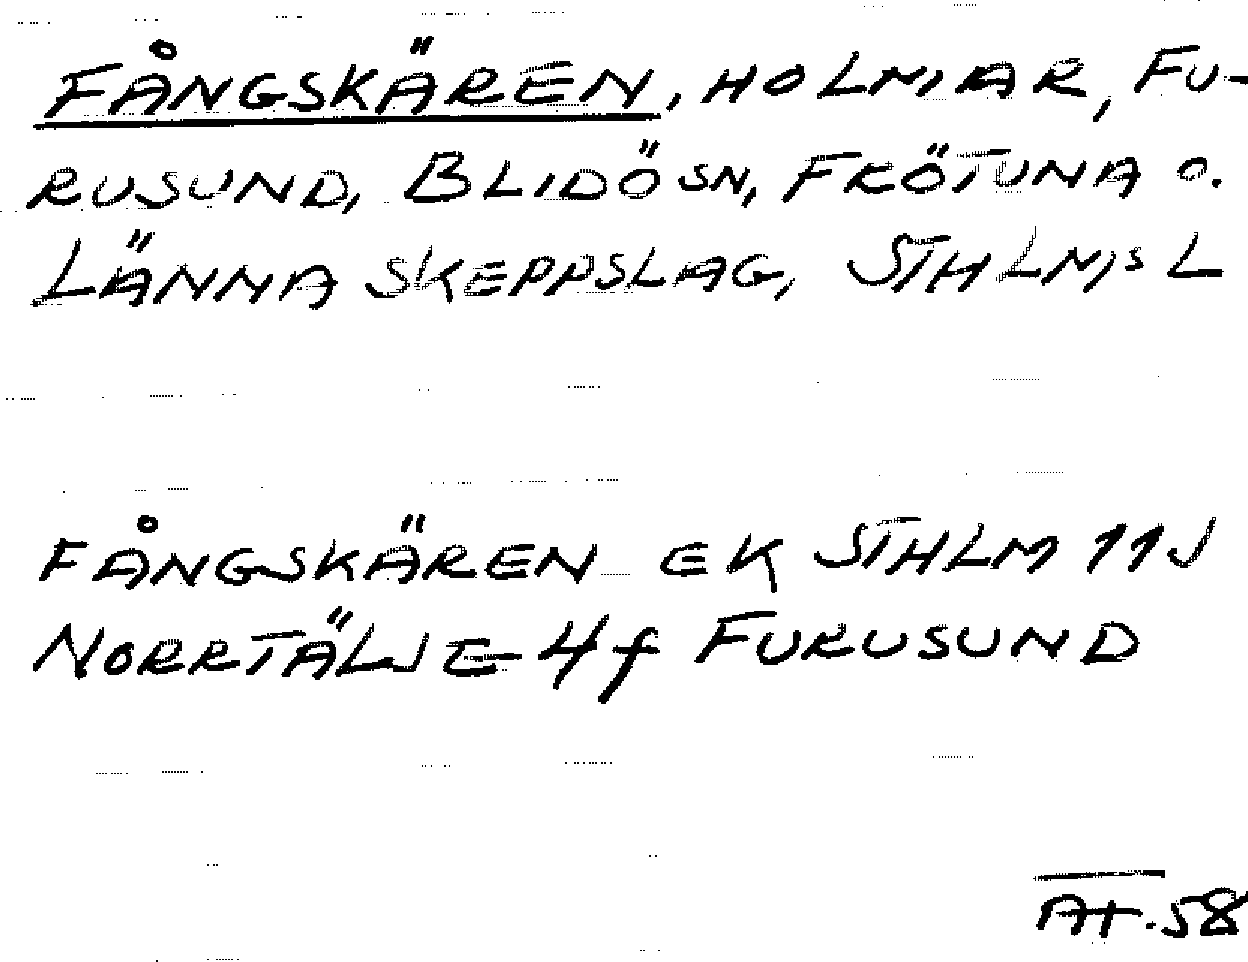 FÅNGSKÄREN, HOLMAR, FU-
RUSUND, BLIDÖ SN, FRÖTUNA O.
LÄNNA SKEPPSLAG, STHLMS L
FÅNGSKÄREN EK STHLM 11J
NORRTÄLJE 4f FURUSUND
AT. 58